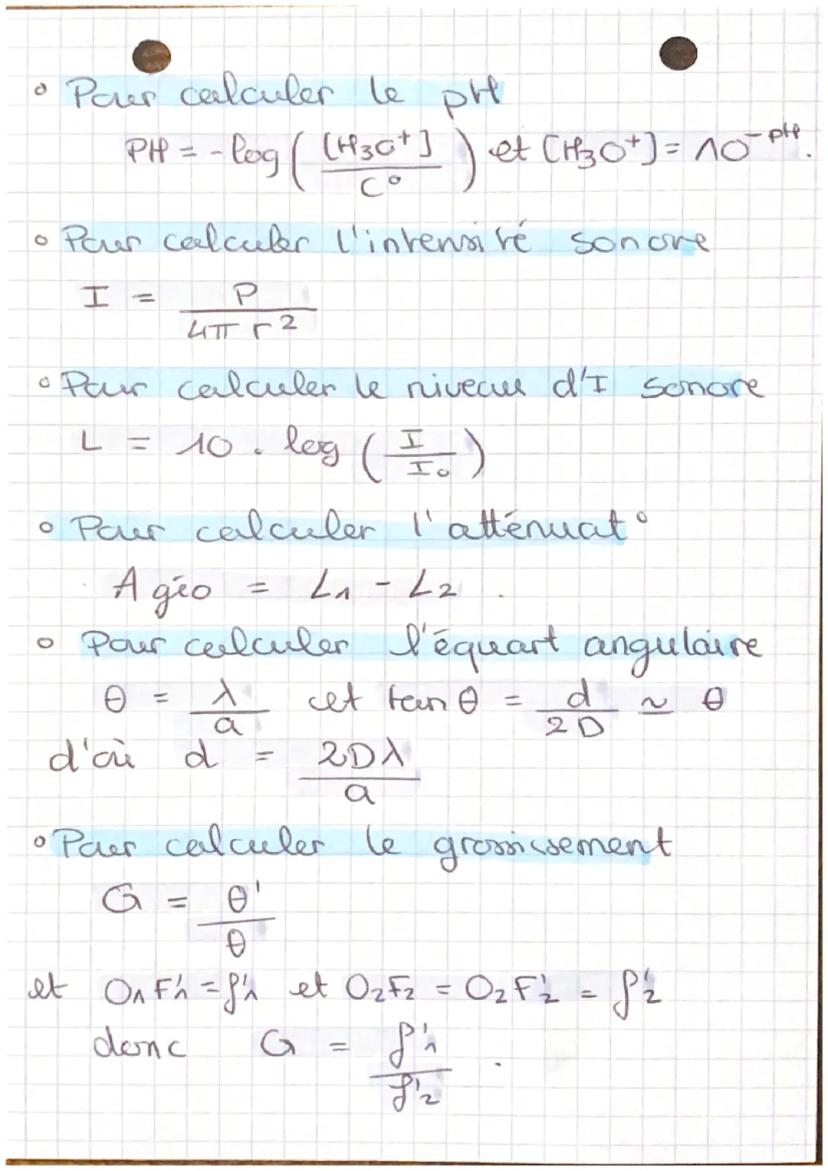 ° Pour calculer le pH
PH = -log( [H3O+] / C° ) et [H3O+] = 10^-pH.
° Pour calculer l'intensité sonore
I = P / 4π r²
° Pour calculer le niveau d'I sonore
L = 10 . log ( I / I₀ )
° Pour calculer l'atténuat°
A géo = L1 - L2 .
° Pour calculer l'équart angulaire
θ = λ / a et tan θ = d / 2D ≃ θ
d'où d = 2Dλ / a
° Pour calculer le grossissement
G = θ' / θ
et O1F'1 = f'1 et O2F2 = O2F'2 = f'2
donc G = f'1 / f'2 .